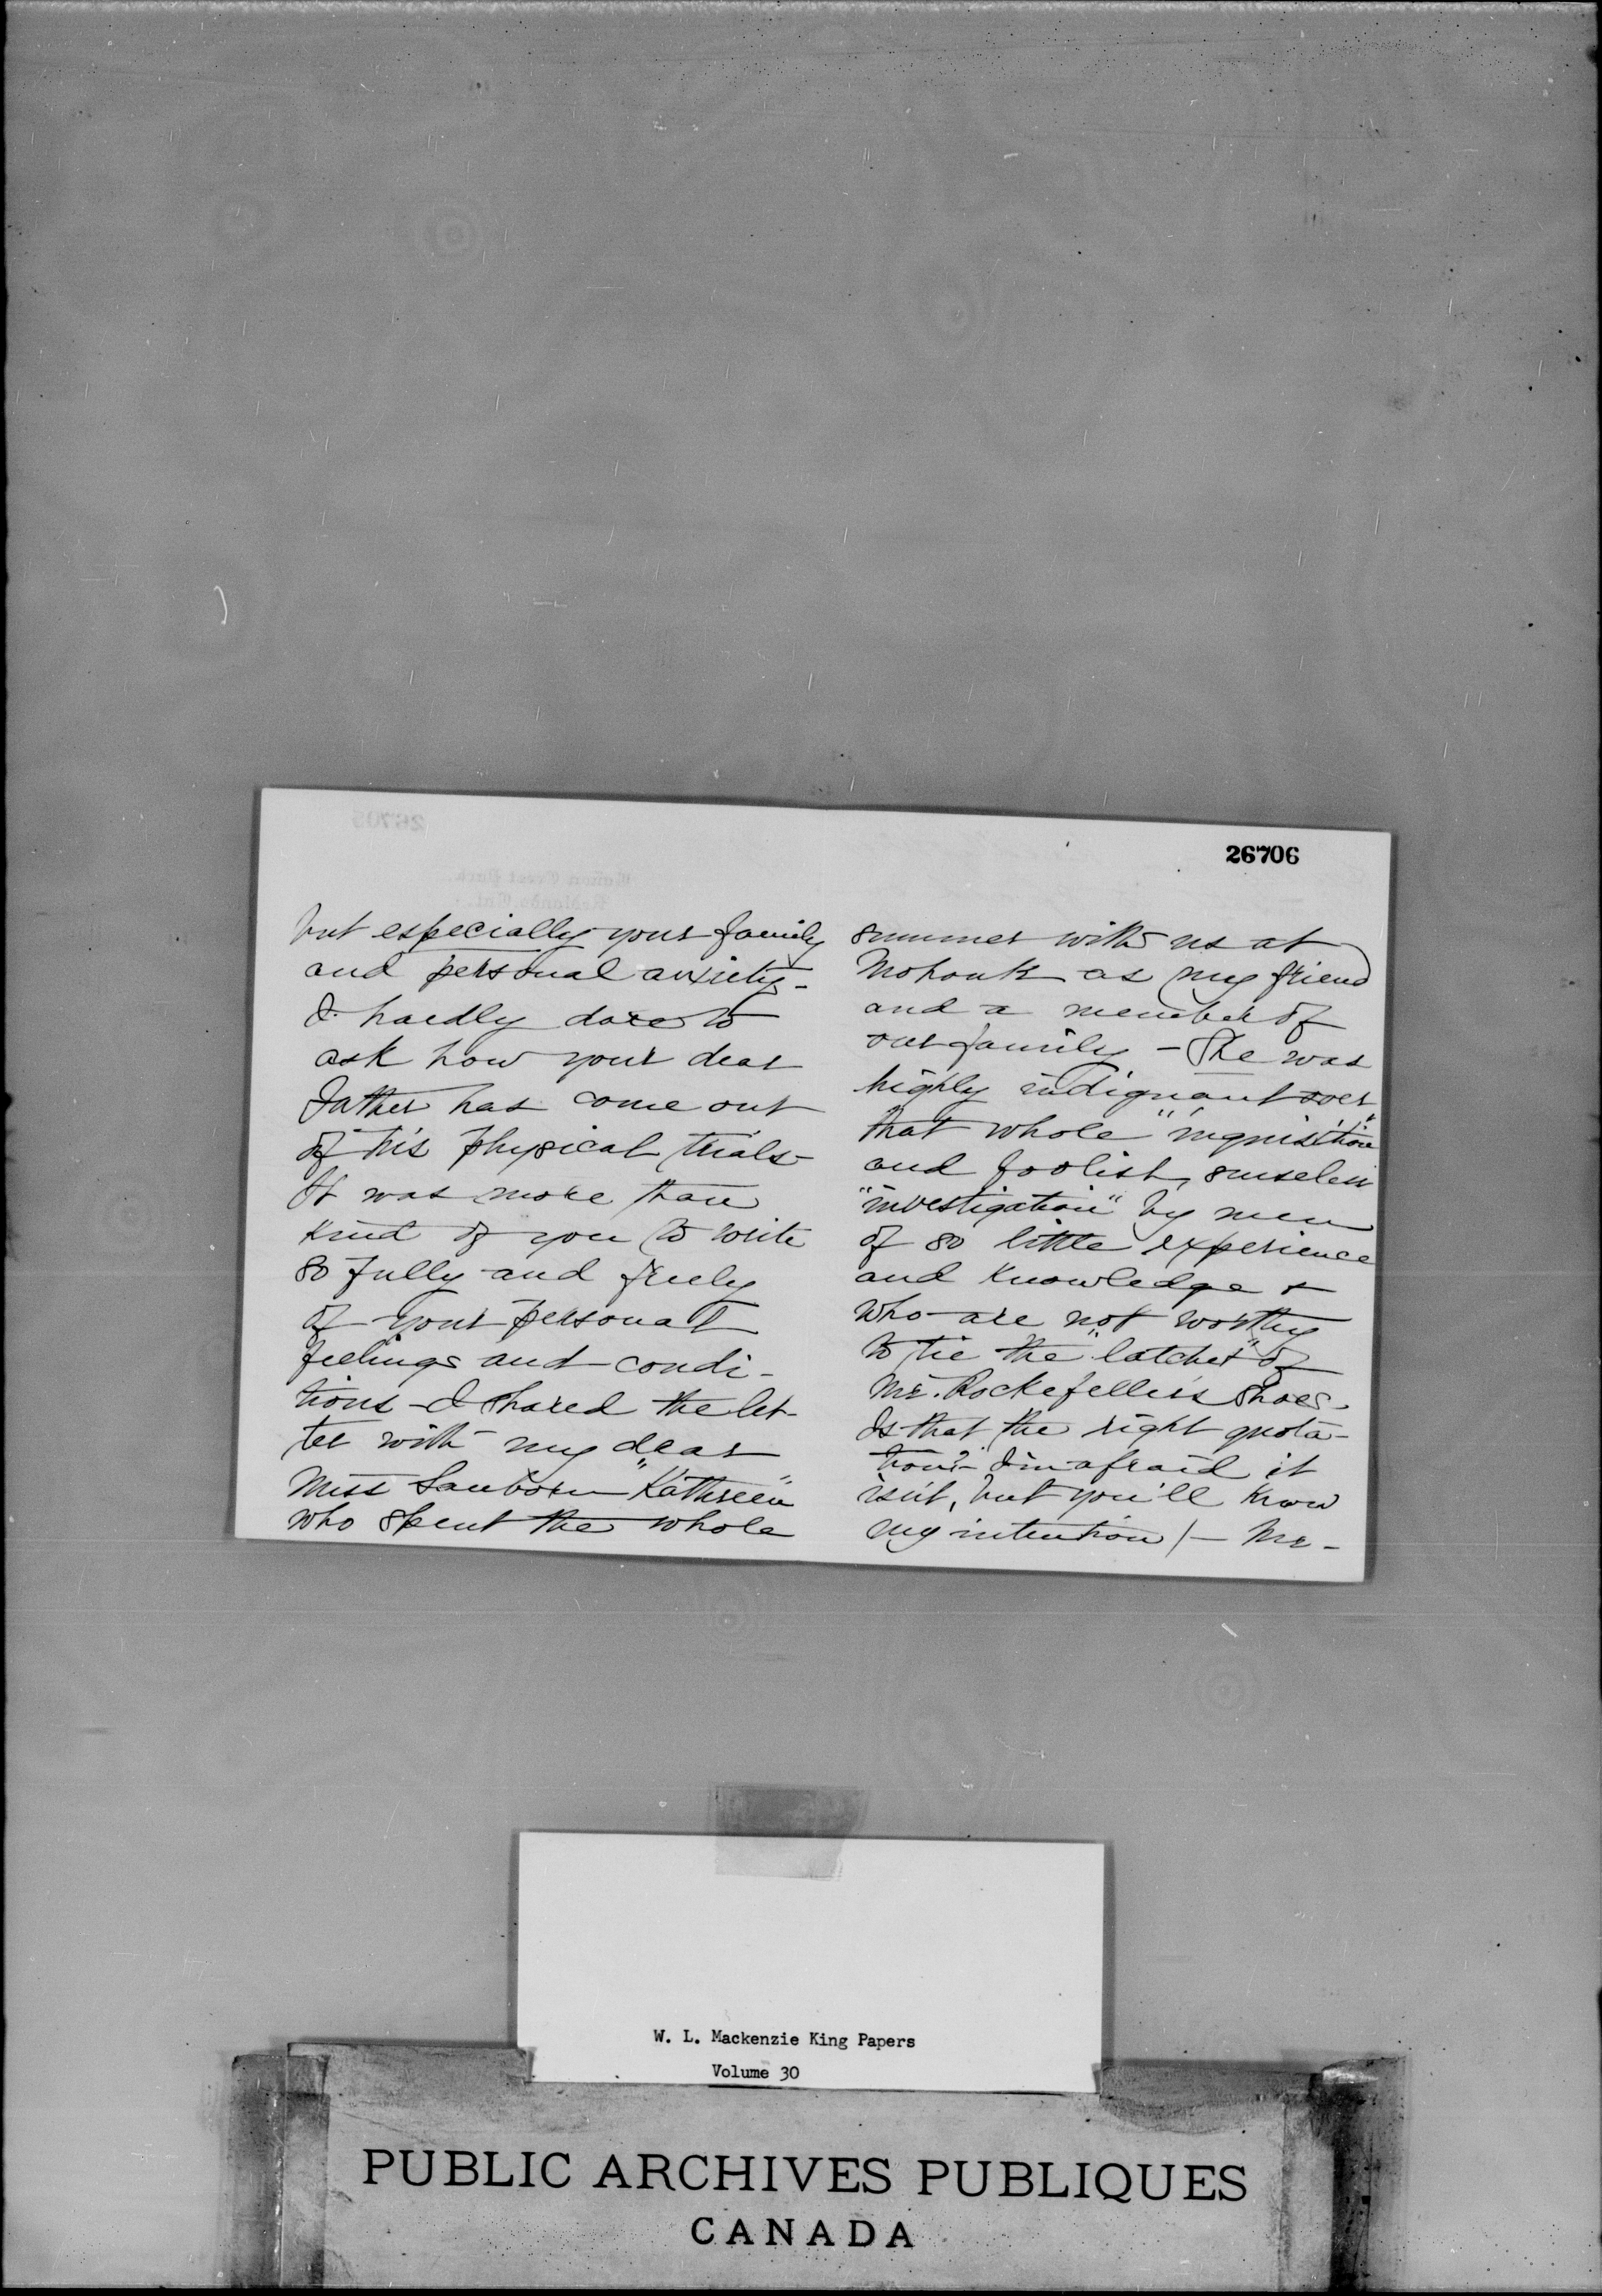 26706
but especially your family
and personal anxiety-
I hardly dare to
ask how your dear
Father has come out
of his physical trials-
It was more than
kind of you to write
so fully and freely
of your personal
feelings and condi-
tions - I shared the let-
ter with my dear
Miss Sanborn "Kathreen"
who spent the whole
summer with us at
Mohonk as my friend
and a member of
our family - She was
highly indignant over
that whole "inquisition"
and foolish, senseless
"investigation" by men
of so little experience
and knowledge &
who are not worthy
to tie the "latchet" of
Mr. Rockefeller's shoes.
Is that the right quota-
tion? - I'm afraid it
isn't, but you'll know
my intention! - Mr -
W. L. Mackenzie King Papers
Volume 30
PUBLIC ARCHIVES PUBLIQUES
CANADA